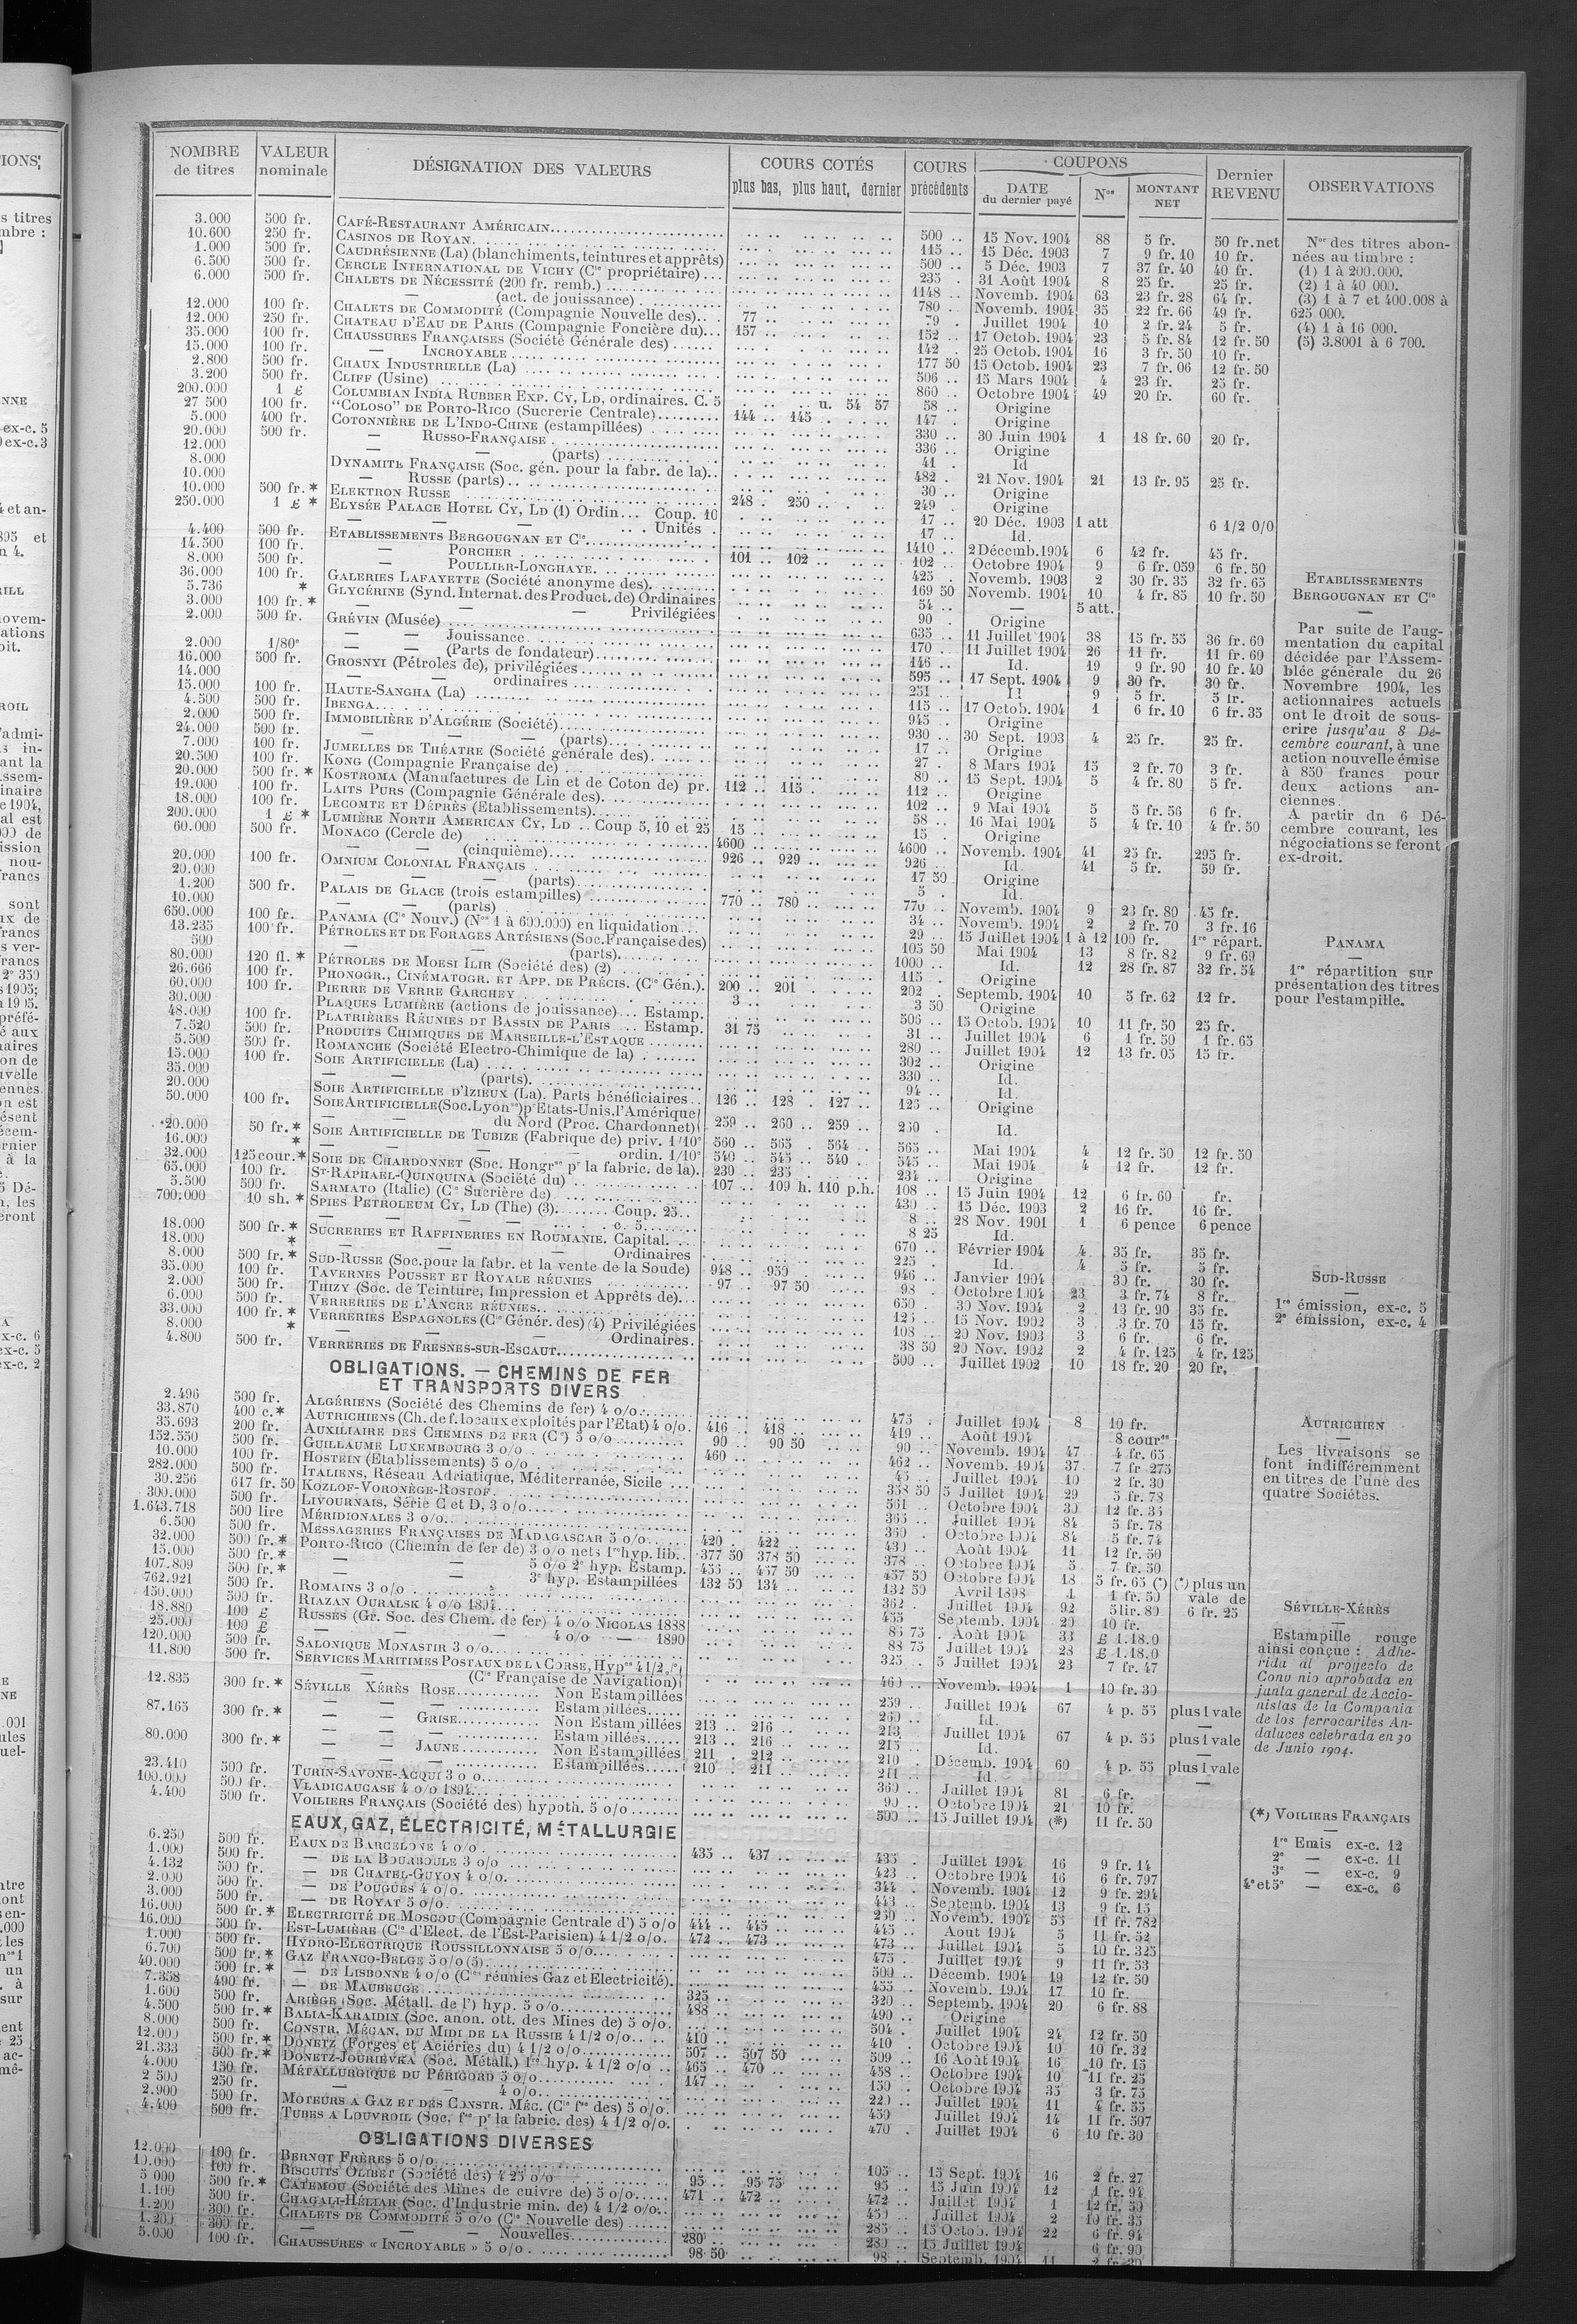 NOMBRE de titres | VALEUR nominale | DÉSIGNATION DES VALEURS | COURS COTÉS plus bas, plus haut, dernier | COURS précédents | COUPONS DATE du dernier payé | Nos | MONTANT NET | Dernier REVENU | OBSERVATIONS
3.000 500 fr. CAFÉ-RESTAURANT AMÉRICAIN 500 .. 15 Nov. 1904 88 5 fr. 50 fr. net
10.600 250 fr. CASINOS DE ROYAN 115 .. 15 Déc. 1903 7 9 fr. 10 10 fr.
1.000 500 fr. CAUDRÉSIENNE (La) (blanchiments, teintures et apprêts) 500 .. 5 Déc. 1903 7 37 fr. 40 40 fr.
6.500 500 fr. CERCLE INTERNATIONAL DE VICHY (Cie propriétaire) 235 . 31 Août 1904 8 25 fr. 25 fr.
6.000 500 fr. CHALETS DE NÉCESSITÉ (200 fr. remb.) 1148 .. Novemb. 1904 63 23 fr. 28 64 fr.
— (act. de jouissance) 780 .. Novemb. 1904 35 22 fr. 66 49 fr.
12.000 100 fr. CHALETS DE COMMODITÉ (Compagnie Nouvelle des) 77 .. 79 . Juillet 1904 10 2 fr. 24 5 fr.
12.000 250 fr. CHATEAU D'EAU DE PARIS (Compagnie Foncière du) 157 .. 152 .. 17 Octob. 1904 23 5 fr. 84 12 fr. 50
35.000 100 fr. CHAUSSURES FRANÇAISES (Société Générale des) 142 . 25 Octob. 1904 16 3 fr. 50 10 fr.
15.000 100 fr. — INCROYABLE 177 50 15 Octob. 1904 23 7 fr. 06 12 fr. 50
2.800 500 fr. CHAUX INDUSTRIELLE (La) 506 .. 15 Mars 1904 4 23 fr. 25 fr.
3.200 500 fr. CLIFF (Usine) 860 .. Octobre 1904 49 20 fr. 60 fr.
200.000 1 £ COLUMBIAN INDIA RUBBER EXP. CY, LD, ordinaires. C. 5 u. 54 57 58 .. Origine
27 500 100 fr. "COLOSO" DE PORTO-RICO (Sucrerie Centrale) 144 .. 145 147 . Origine
5.000 400 fr. COTONNIÈRE DE L'INDO-CHINE (estampillées) 330 .. 30 Juin 1904 1 18 fr. 60 20 fr.
20.000 500 fr. — RUSSO-FRANÇAISE 336 .. Origine
12.000 — — (parts) 41 . Id
8.000 DYNAMITE FRANÇAISE (Soc. gén. pour la fabr. de la) 482 . 21 Nov. 1904 21 13 fr. 95 25 fr.
10.000 — RUSSE (parts) 30 .. Origine
10.000 500 fr. * ELEKTRON RUSSE 248 . 250 249 . Origine
250.000 1 £ * ELYSÉE PALACE HOTEL CY, LD (1) Ordin... Coup. 10 17 .. 20 Déc. 1903 1 att 6 1/2 0/0
— — — Unités 17 .. Id.
4.400 500 fr. ETABLISSEMENTS BERGOUGNAN ET Cie 1410 .. 2 Décemb. 1904 6 42 fr. 45 fr.
14.500 100 fr. — PORCHER 101 .. 102 102 .. Octobre 1904 9 6 fr. 059 6 fr. 50
8.000 500 fr. — POULLIER-LONGHAYE 425 . Novemb. 1903 2 30 fr. 35 32 fr. 65
36.000 100 fr. GALERIES LAFAYETTE (Société anonyme des) 169 50 Novemb. 1904 10 4 fr. 85 10 fr. 50
5.736 * GLYCÉRINE (Synd. Internat. des Product. de) Ordinaires 54 .. — 5 att.
3.000 100 fr. * — — Privilégiées 90 . Origine
2.000 500 fr. GRÉVIN (Musée) 635 .. 11 Juillet 1904 38 15 fr. 55 36 fr. 60
— — Jouissance 170 .. 11 Juillet 1904 26 11 fr. 11 fr. 60
2.000 1/80e — — (Parts de fondateur) 146 .. Id. 19 9 fr. 90 10 fr. 40
16.000 500 fr. GROSNYI (Pétroles de), privilégiées 595 .. 17 Sept. 1904 9 30 fr. 30 fr.
14.000 — — ordinaires 251 .. Id 9 5 fr. 5 fr.
15.000 100 fr. HAUTE-SANGHA (La) 115 .. 17 Octob. 1904 1 6 fr. 10 6 fr. 35
4.500 500 fr. IBENGA 945 .. Origine
2.000 500 fr. IMMOBILIÈRE D'ALGÉRIE (Société) 930 .. 30 Sept. 1903 4 25 fr. 25 fr.
24.000 500 fr. — — (parts) 17 .. Origine
7.000 100 fr. JUMELLES DE THÉATRE (Société générale des) 27 . 8 Mars 1904 15 2 fr. 70 3 fr.
20.500 100 fr. KONG (Compagnie Française de) 80 .. 15 Sept. 1904 5 4 fr. 80 5 fr.
20.000 500 fr. * KOSTROMA (Manufactures de Lin et de Coton de) pr. 112 .. 115 112 .. Origine
19.000 100 fr. LAITS PURS (Compagnie Générale des) 102 .. 9 Mai 1904 5 5 fr. 56 6 fr.
18.000 100 fr. LECOMTE ET DÉPRÈS (Etablissements) 58 .. 16 Mai 1904 5 4 fr. 10 4 fr. 50
200.000 1 £ * LUMIÈRE NORTH AMERICAN CY, LD .. Coup 5, 10 et 25 15 .. 15 . Origine
60.000 500 fr. MONACO (Cercle de) 4600 .. 4600 .. Novemb. 1904 41 25 fr. 295 fr.
— — (cinquième) 926 .. 929 926 .. Id. 41 5 fr. 59 fr.
20.000 100 fr. OMNIUM COLONIAL FRANÇAIS 17 50 Origine
20.000 — — — (parts) 5 . Id.
1.200 500 fr. PALAIS DE GLACE (trois estampilles) 770 .. 780 770 .. Novemb. 1904 9 23 fr. 80 45 fr.
10.000 — — (parts) 34 .. Novemb. 1904 2 2 fr. 70 3 fr. 16
650.000 100 fr. PANAMA (Cie Nouv.) (Nos 1 à 600.000) en liquidation 29 .. 15 Juillet 1904 1 à 12 100 fr. 1re répart.
13.235 100 fr. PÉTROLES ET DE FORAGES ARTÉSIENS (Soc. Française des) 105 50 Mai 1904 13 8 fr. 82 9 fr. 69
500 — — (parts) 1000 .. Id. 12 28 fr. 87 32 fr. 54
80.000 120 fl. * PÉTROLES DE MOESI ILIR (Société des) (2) 115 .. Origine
26.666 100 fr. PHONOGR., CINÉMATOGR. ET APP. DE PRÉCIS. (Cie Gén.) 200 .. 201 202 . Septemb. 1904 10 5 fr. 62 12 fr.
60.000 100 fr. PIERRE DE VERRE GARCHEY 3 .. 3 50 Origine
30.000 PLAQUES LUMIÈRE (actions de jouissance) Estamp. 506 .. 15 Octob. 1904 10 11 fr. 50 25 fr.
48.000 100 fr. PLATRIÈRES RÉUNIES DU BASSIN DE PARIS .. Estamp. 31 75 31 .. Juillet 1904 6 1 fr. 50 1 fr. 65
7.520 500 fr. PRODUITS CHIMIQUES DE MARSEILLE-L'ESTAQUE 280 .. Juillet 1904 12 13 fr. 05 15 fr.
5.500 500 fr. ROMANCHE (Société Electro-Chimique de la) 302 .. Origine
15.000 100 fr. SOIE ARTIFICIELLE (La) 330 .. Id.
35.000 — — (parts) 94 .. Id.
20.000 SOIE ARTIFICIELLE D'IZIEUX (La). Parts bénéficiaires 126 .. 128 . 127 .. 125 .. Origine
50.000 100 fr. SOIE ARTIFICIELLE (Soc. Lyonse) pr Etats-Unis, l'Amérique
du Nord (Proc. Chardonnet) 259 .. 260 .. 259 .. 260 . Id.
20.000 50 fr. * SOIE ARTIFICIELLE DE TUBIZE (Fabrique de) priv. 1/10e 560 .. 565 . 564 .. 565 . Mai 1904 4 12 fr. 50 12 fr. 50
16.000 * — — ordin. 1/10e 540 .. 545 .. 540 .. 545 .. Mai 1904 4 12 fr. 12 fr.
32.000 125 cour. * SOIE DE CHARDONNET (Soc. Hongrse pr la fabric. de la) 230 .. 235 234 .. Origine
65.000 100 fr. ST-RAPHAEL-QUINQUINA (Société du) 107 .. 109 h. 110 p.h. 108 .. 15 Juin 1904 12 6 fr. 60 fr.
5.500 500 fr. SARMATO (Italie) (Cie Sucrière de) 430 .. 15 Déc. 1903 2 16 fr. 16 fr.
700.000 10 sh. * SPIES PETROLEUM CY, LD (The) (3) Coup. 25 8 .. 28 Nov. 1901 1 6 pence 6 pence
— — c. 5 8 25 Id.
18.000 500 fr. * SUCRERIES ET RAFFINERIES EN ROUMANIE. Capital. 670 .. Février 1904 4 35 fr. 35 fr.
18.000 * — — Ordinaires 225 .. Id. 4 5 fr. 5 fr.
8.000 500 fr. * SUD-RUSSE (Soc. pour la fabr. et la vente de la Soude) 948 .. 950 946 .. Janvier 1904 30 fr. 30 fr.
35.000 100 fr. TAVERNES POUSSET ET ROYALE RÉUNIES 97 .. 97 50 98 . Octobre 1904 23 3 fr. 74 8 fr.
2.000 500 fr. THIZY (Soc. de Teinture, Impression et Apprêts de) 650 .. 30 Nov. 1904 2 13 fr. 90 35 fr.
6.000 500 fr. VERRERIES DE L'ANCRE RÉUNIES 125 .. 15 Nov. 1902 3 3 fr. 70 15 fr.
33.000 100 fr. * VERRERIES ESPAGNOLES (Cie Génér. des) (4) Privilégiées 108 .. 20 Nov. 1903 3 6 fr. 6 fr.
8.000 * — — Ordinaires 38 50 20 Nov. 1902 2 4 fr. 125 4 fr. 125
4.800 500 fr. VERRERIES DE FRESNES-SUR-ESCAUT 500 .. Juillet 1902 10 18 fr. 20 20 fr.
OBLIGATIONS. — CHEMINS DE FER
ET TRANSPORTS DIVERS
2.496 500 fr. ALGÉRIENS (Société des Chemins de fer) 4 o/o 475 . Juillet 1904 8 10 fr.
33.870 400 c. * AUTRICHIENS (Ch. de f. locaux exploités par l'Etat) 4 o/o 416 .. 418 419 .. Août 1904 8 cour.
35.693 200 fr. AUXILIAIRE DES CHEMINS DE FER (Cie) 5 o/o 90 .. 90 50 90 .. Novemb. 1904 47 4 fr. 65
152.550 500 fr. GUILLAUME LUXEMBOURG 3 o/o 460 .. 462 .. Novemb. 1904 37 7 fr 275
10.000 100 fr. HOSTEIN (Etablissements) 5 o/o 45 .. Juillet 1904 10 2 fr. 30
282.000 500 fr. ITALIENS, Réseau Adriatique, Méditerranée, Sicile 358 50 5 Juillet 1904 29 5 fr. 78
30.256 617 fr. 50 KOZLOF-VORONÈGE-ROSTOF 561 .. Octobre 1904 30 12 fr. 35
300.000 500 fr. LIVOURNAIS, Série C et D, 3 o/o 365 .. Juillet 1904 84 5 fr. 78
1.643.718 500 lire MÉRIDIONALES 3 o/o 360 . Octobre 1904 84 5 fr. 74
6.500 500 fr. MESSAGERIES FRANÇAISES DE MADAGASCAR 5 o/o 420 . 422 430 .. Août 1904 11 12 fr. 50
32.000 500 fr. * PORTO-RICO (Chemin de fer de) 3 o/o nets 1re hyp. lib. 377 50 378 50 378 .. Octobre 1904 5 7 fr. 50
15.000 500 fr. * — — 5 o/o 2e hyp. Estamp. 455 .. 457 50 457 50 Octobre 1904 18 5 fr. 65 (*) (*) plus un
107.809 500 fr. * — — 3e hyp. Estampillées 132 50 134 132 50 Avril 1898 1 1 fr. 50 vale de
762.921 500 fr. ROMAINS 3 o/o 362 . Juillet 1904 92 5 lir. 80 6 fr. 25
150.000 500 fr. RIAZAN OURALSK 4 o/o 1894 455 Septemb. 1904 20 10 fr.
18.880 100 £ RUSSES (Gr. Soc. des Chem. de fer) 4 o/o NICOLAS 1888 85 75 Août 1904 33 £ 1.18.0
25.000 100 £ — — 4 o/o — 1890 88 75 Juillet 1904 28 £ 1.18.0
120.000 500 fr. SALONIQUE MONASTIR 3 o/o 325 .. 5 Juillet 1904 23 7 fr. 47
11.800 500 fr. SERVICES MARITIMES POSTAUX DE LA CORSE, Hypre 4 1/2 o/o
(Cie Française de Navigation) 460 .. Novemb. 1904 1 10 fr. 30
12.835 300 fr. * SÉVILLE XÉRÈS ROSE Non Estampillées 259 .. Juillet 1904 67 4 p. 55 plus 1 vale
— — Estampillées 260 .. Id. —
87.165 300 fr. * — — GRISE Non Estampillées 213 .. 216 213 .. Juillet 1904 67 4 p. 55 plus 1 vale
— — Estampillées 213 .. 216 215 .. Id. —
80.000 300 fr. * — — JAUNE Non Estampillées 211 . 212 210 .. Décemb. 1904 60 4 p. 55 plus 1 vale
— — Estampillées 210 .. 211 211 .. Id. —
23.410 500 fr. TURIN-SAVONE-ACQUI 3 o/o 360 .. Juillet 1904 81 6 fr.
100.000 500 fr. VLADICAUCASE 4 o/o 1894 90 .. Octobre 1904 21 10 fr.
4.400 500 fr. VOILIERS FRANÇAIS (Société des) hypoth. 5 o/o 500 .. 15 Juillet 1904 (*) 11 fr. 50
EAUX, GAZ, ÉLECTRICITÉ, MÉTALLURGIE
6.250 500 fr. EAUX DE BARCELONE 4 o/o 435 .. 437 435 . Juillet 1904 16 9 fr. 14
1.000 500 fr. — DE LA BOURBOULE 3 o/o 423 . Octobre 1904 16 6 fr. 797
4.132 500 fr. — DE CHATEL-GUYON 4 o/o 344 .. Novemb. 1904 12 9 fr. 294
2.000 500 fr. — DE POUGUES 4 o/o 443 .. Septemb. 1904 13 9 fr. 15
3.000 500 fr. — DE ROYAT 5 o/o 250 .. Novemb. 1904 55 11 fr. 782
16.000 500 fr. * ELECTRICITÉ DE MOSCOU (Compagnie Centrale d') 5 o/o 444 .. 445 445 .. Aout 1904 5 11 fr. 52
16.000 500 fr. EST-LUMIÈRE (Cie d'Elect. de l'Est-Parisien) 4 1/2 o/o 472 .. 473 473 .. Juillet 1904 5 10 fr. 325
1.000 500 fr. HYDRO-ELECTRIQUE ROUSSILLONNAISE 5 o/o 475 . Juillet 1904 9 11 fr. 53
6.700 500 fr. * GAZ FRANCO-BELGE 5 o/o (5) 500 .. Décemb. 1904 19 12 fr. 50
40.000 500 fr. * — DE LISBONNE 4 o/o (Cies réunies Gaz et Electricité) 455 .. Novemb. 1904 17 10 fr.
7.358 400 fr. — DE MAUBEUGE 325 .. 320 .. Septemb. 1904 20 6 fr. 88
1.600 500 fr. ARIÈGE (Soc. Métall. de l') hyp. 5 o/o 488 .. 490 .. Origine
4.500 500 fr. * BALIA-KARAIDIN (Soc. anon. ott. des Mines de) 5 o/o 504 . Juillet 1904 24 12 fr. 50
8.000 500 fr. CONSTR. MÉCAN. DU MIDI DE LA RUSSIE 4 1/2 o/o 410 .. 410 . Octobre 1904 10 10 fr. 32
12.000 500 fr. * DONETZ (Forges et Aciéries du) 4 1/2 o/o 507 .. 507 50 509 .. 16 Août 1904 16 10 fr. 15
21.333 500 fr. * DONETZ-JOURIEVKA (Soc. Métall.) 1re hyp. 4 1/2 o/o 465 .. 470 458 .. Octobre 1904 10 11 fr. 25
4.000 150 fr. MÉTALLURGIQUE DU PÉRIGORD 5 o/o 147 .. 150 .. Octobre 1904 35 3 fr. 75
2 500 250 fr. — — 4 o/o 220 .. Juillet 1904 11 4 fr. 55
2.900 500 fr. MOTEURS A GAZ ET DES CONSTR. MÉC. (Cie fse des) 5 o/o 450 .. Juillet 1904 14 11 fr. 507
4.400 500 fr. TUBES A LOUVROIL (Soc. fse pr la fabric. des) 4 1/2 o/o 470 . Juillet 1904 6 10 fr. 30
OBLIGATIONS DIVERSES
12.000 100 fr. BERNOT FRÈRES 5 o/o 105 .. 15 Sept. 1904 16 2 fr. 27
10.000 100 fr. BISCUITS OLIBET (Société des) 4 25 o/o 95 .. 95 75 95 .. 15 Juin 1904 12 1 fr. 94
5 000 500 fr. * CATEMOU (Société des Mines de cuivre de) 5 o/o 471 .. 472 472 .. Juillet 1904 1 12 fr. 50
1.100 500 fr. CHAGALI-HÉLIAR (Soc. d'Industrie min. de) 4 1/2 o/o 450 .. Juillet 1904 2 10 fr. 35
1.200 300 fr. CHALETS DE COMMODITÉ 5 o/o (Cie Nouvelle des) 285 .. 15 Octob. 1904 22 6 fr. 94
1.200 300 fr. — — — Nouvelles 280 280 .. 15 Juillet 1904 6 fr. 90
5.000 100 fr. CHAUSSURES « INCROYABLE » 5 o/o 98 50 98 .. Septemb. 1904 11
Nos des titres abonnés au timbre :
(1) 1 à 200.000.
(2) 1 à 40 000.
(3) 1 à 7 et 400.008 à
625 000.
(4) 1 à 16 000.
(5) 3.8001 à 6 700.
ETABLISSEMENTS
BERGOUGNAN ET Cie
—
Par suite de l'aug-
mentation du capital
décidée par l'Assem-
blée générale du 26
Novembre 1904, les
actionnaires actuels
ont le droit de sous-
crire jusqu'au 8 Dé-
cembre courant, à une
action nouvelle émise
à 850 francs pour
deux actions an-
ciennes.
A partir dn 6 Dé-
cembre courant, les
négociations se feront
ex-droit.
PANAMA
—
1re répartition sur
présentation des titres
pour l'estampille.
SUD-RUSSE
—
1re émission, ex-c. 5
2e émission, ex-c. 4
AUTRICHIEN
—
Les livraisons se
font indifféremment
en titres de l'une des
quatre Sociétés.
SÉVILLE-XÉRÈS
—
Estampille rouge
ainsi conçue : Adhe-
rida al proyecto de
Convenio aprobada en
junta general de Accio-
nistas de la Compania
de los ferrocarites An-
daluces celebrada en 30
de Junio 1904.
(*) VOILIERS FRANÇAIS
—
1re Emis ex-c. 12
2e — ex-c. 11
3e — ex-c. 9
4e et 5e — ex-c. 6